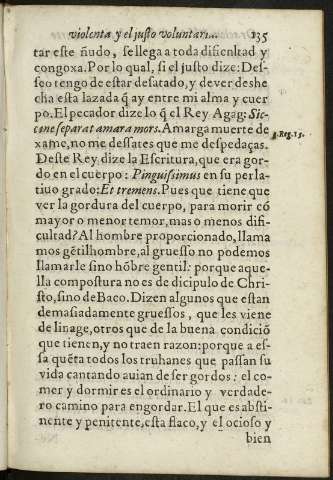 violenta y el justo voluntari... 135
tar este ñudo, se llega a toda dificultad y
congoxa. Por lo qual, si el justo dize: Des-
seo tengo de estar desatado, y dever deshe
cha esta lazada q̃ ay entre mi alma y cuer
po. El pecador dize lo q̃ el Rey Agag: Sic-
cine separat amara mors. Amarga muerte de
xame, no me dessates que me despedaças.
Deste Rey dize la Escritura, que era gor-
do en el cuerpo: Pinguissimus en su perla-
tiuo grado: Et tremens. Pues que tiene que
ver la gordura del cuerpo, para morir cõ
mayor o menor temor, mas o menos difi-
cultad? Al hombre proporcionado, llama
mos gẽtilhombre, al gruesso no podemos
llamarle sino hõbre gentil: porque aque-
lla compostura no es de dicipulo de Chri-
sto, sino de Baco. Dizen algunos que estan
demasiadamente gruessos, que les viene
de linage, otros que de la buena condiciõ
que tienen, y no traen razon: porque a es-
sa quẽta todos los truhanes que passan su
vida cantando auian de ser gordos: el co-
mer y dormir es el ordinario y verdade-
ro camino para engordar. El que es absti-
nente y penitente, esta flaco, y el ocioso y
bien
1. Reg. 15.